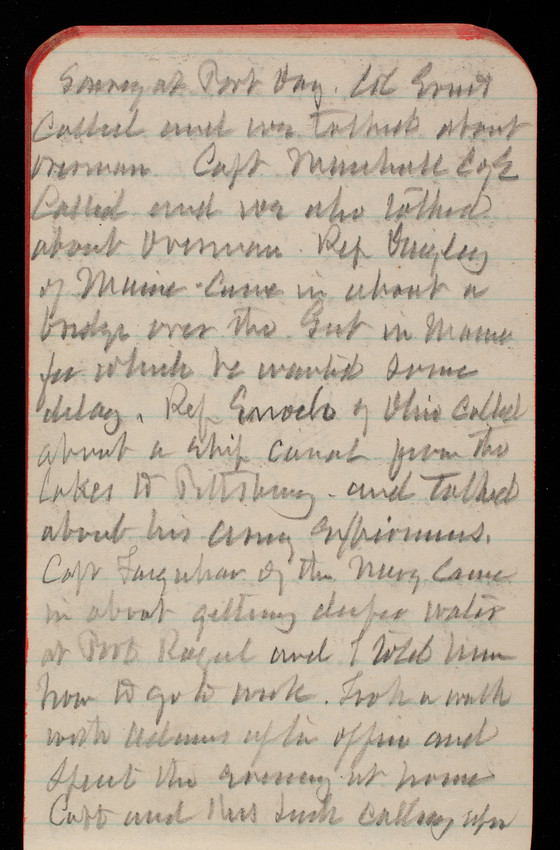 Survey at Port Day. Col Ernst
Called and we talked about
Overman Capt Marshall Cofs
Called and we also talked
about Overman. Rep Dingley
of Maine Came in about a
bridge over the Gut in Maine
for which he wanted some
delay. Rep Enochs of Ohio Called
about a ship canal from the
Lakes to Pittsburg and talked
about his army experiences.
Capt Farquhar of the Navy Came
in about getting deeper water
at Port Royal and I told him
how to go to work. Took a walk
with Adams after office and
Spent the evening at home
Capt and Mrs calling upon